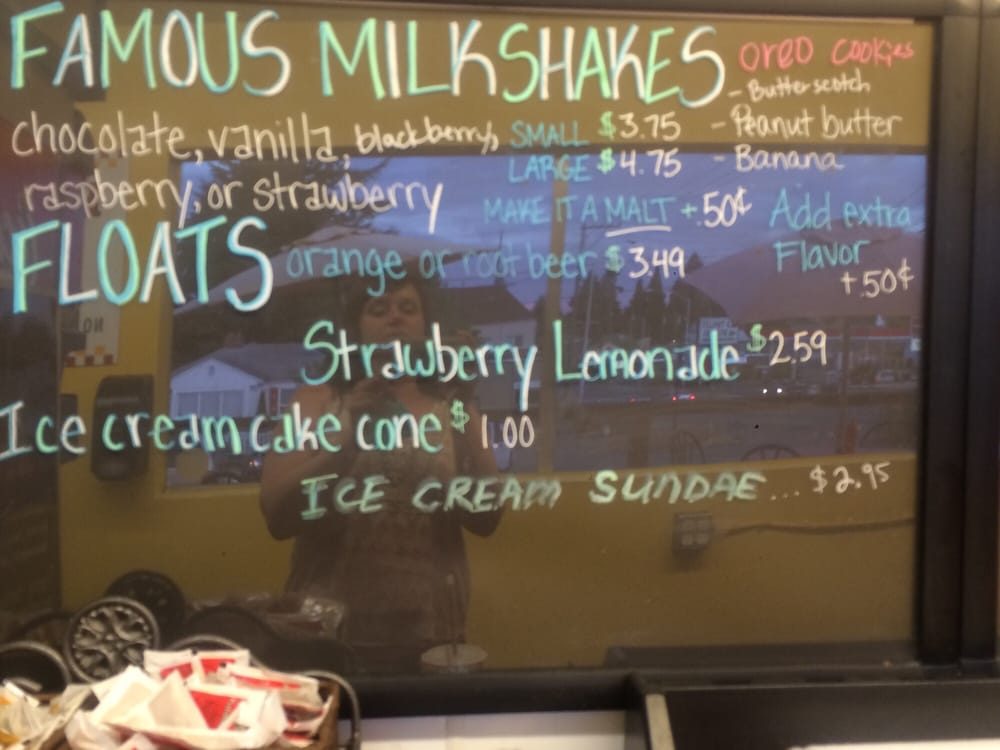 FAMOUS MILKSHAKES
oreo cookies
- Butterscotch
- Peanut butter
- Banana
chocolate, vanilla, blackberry,
raspberry, or strawberry
SMALL $3.75
LARGE $4.75
MAKE IT A MALT +.50¢
Add extra
Flavor
+.50¢
FLOATS orange or root beer $3.49
Strawberry Lemonade $2.59
Ice cream cake cone $1.00
ICE CREAM SUNDAE... $2.95